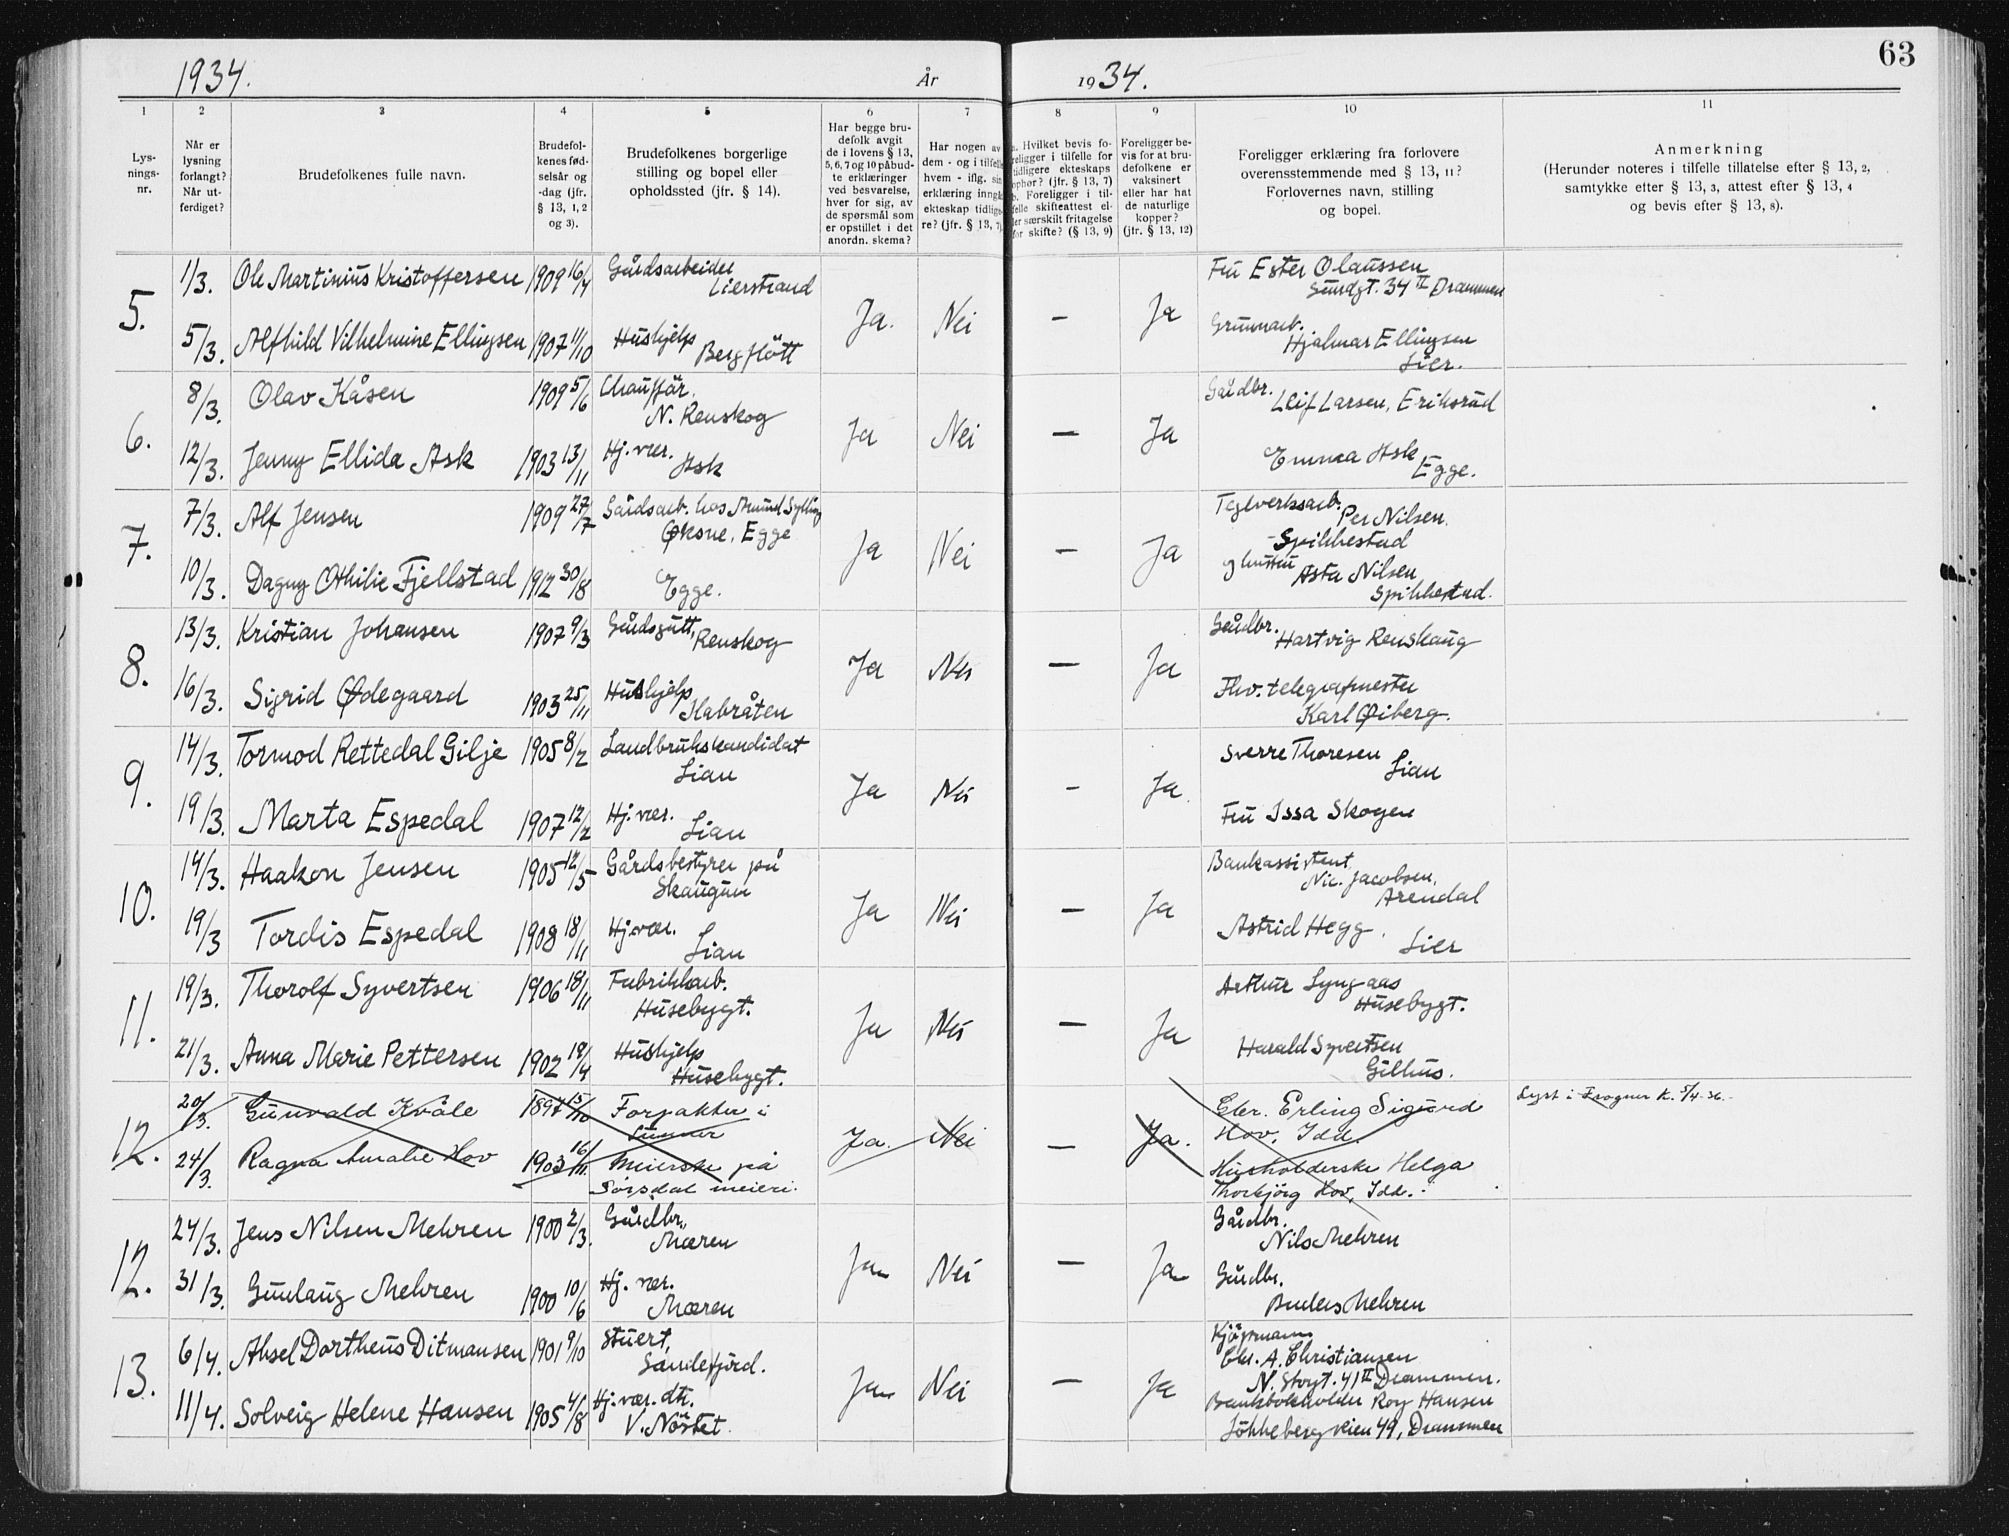 1934.
År
1934.
63
1
2
3
4
5
6
7
8
9
10
11
Lys-
nings-
nr.
Når er
lysning
forlangt?
Når ut-
ferdiget?
Brudefolkenes fulle navn.
Brudefol-
kenes fød-
selsår og
-dag (jfr.
§ 13, 1, 2
og 3).
Brudefolkenes borgerlige
stilling og bopel eller
opholdssted (jfr. § 14).
Har begge bru-
defolk avgit
de i lovens § 13,
5, 6, 7 og 10 påbud-
te erklæringer
ved besvarelse,
hver for sig, av
de spørsmål som
er opstillet i det
anordn. skema?
Har nogen av
dem - og i tilfelle
hvem - iflg. sin
erklæring inngått
ekteskap tidlige-
re? (jfr. § 13, 7)
a. Hvilket bevis fo-
religger i tilfelle for
tidligere ekteskaps
ophør? (jfr. § 13, 7)
b. Foreligger i til-
felle skifteattest el-
ler særskilt fritagelse
for skifte? (§ 13, 9)
Foreligger be-
vis for at bru-
defolkene er
vaksinert
eller har hat
de naturlige
kopper?
(jfr. § 13, 12)
Foreligger erklæring fra forlovere
overensstemmende med § 13, 11?
Forlovernes navn, stilling
og bopel.
Anmerkning
(Herunder noteres i tilfelle tillatelse efter § 13, 2,
samtykke efter § 13, 3, attest efter § 13, 4
og bevis efter § 13, 8).
5.
1/3.
Ole Martinius Kristoffersen
1909 16/7
Gårdsarbeider
Lierstrand
5/3.
Alfhild Vilhelmine Ellingsen
1907 11/10
Hushjelp
Bergflött
Ja.
Nei
–
Ja
Fru Ester Olaussen
Sundgt. 34 II Drammen
Grunnarb.
Hjalmar Ellingsen
Lier.
6.
8/3.
Olav Kåsen
1909 5/6
Chauffør.
N. Renskog
12/3.
Jenny Ellida Ask
1903 13/11
Hj. vær.
Ask
Ja
Nei
–
Ja
Gårdbr.
Leif Larsen, Eriksrud
Emma Ask
Egge.
7.
7/3.
Alf Jensen
1909 27/7
Gårdsarb. hos Amund Sylling
Øksne, Egge
10/3.
Dagny Othilie Fjellstad
1912 30/8
Egge.
Ja
Nei
–
Ja
Teglverksarb.
Per Nilsen.
Spikkestad
og hustru
Asta Nilsen
Spikkestad.
8.
13/3.
Kristian Johansen
1907 9/3
Gårdsgutt,
Renskog
16/3.
Sigrid Ødegaard
1903 25/11
Hushjelp
Habråten
Ja
Nei
–
Ja
Gårdbr.
Hartvig Renskaug
Fhv. telegrafmester
Karl Øiberg.
9.
14/3.
Tormod Rettedal Gilje
1905 8/2
Landbrukskandidat
Lian
19/3.
Marta Espedal
1907 12/2
Hj. vær.
Lian
Ja
Nei
–
Ja
Sverre Thoresen
Lian
Fru Issa Skogen
10.
14/3.
Haakon Jensen
1905 12/5
Gårdsbestyrer på
Skaugum
19/3
Tordis Espedal
1908 18/11
Hj. vær.
Lian
Ja
Nei
–
Ja
Bankassistent
Nic. Jacobsen,
Arendal
Astrid Hegg.
Lier
11.
19/3.
Thorolf Syvertsen
1906 18/11
Fabrikkarb.
Husebygt.
21/3.
Anna Marie Pettersen
1902 19/4
Hushjelp
Husebygt.
Ja
Nei
–
Ja
Arthur Lyngaas
Husebygt.
Harald Syvertsen
Gilhus.
12.
20/3.
Gunvald Kvåle
1897 15/10
Forpakter i
24/3.
Ragna Amalie Hov
1903 16/11.
Meierske på
Sørsdal meieri.
Ja.
Nei
–
Ja.
Chr. Erling Sigurd
Hov, Idd.
Husholderske Helga
Thorbjörg Hov, Idd.
Lyst i Frogner k. 5/4-36.
12.
24/3.
Jens Nilsen Mehren
1900 2/3.
Gårdbr.,
Mæren
31/3.
Gunlaug Mehren
1900 10/6
Hj. vær.
Mæren
Ja
Nei
–
Ja
Gårdbr.
Nils Mehren
Gårdbr.
Anders Mehren
13.
6/4.
Aksel Dortheus Ditmansen
1901 9/10
Stuert,
Sandefjord.
11/4.
Solveig Helene Hansen
1905 4/8
Hj. vær. dtr.
V. Nøstet.
Ja
Nei
–
Ja
Kjøpmann
Chr. A. Christiansen
N. Storgt. 41 II Drammen.
Bankbokholder Roy Hansen
Jökkebergveien 49, Drammen